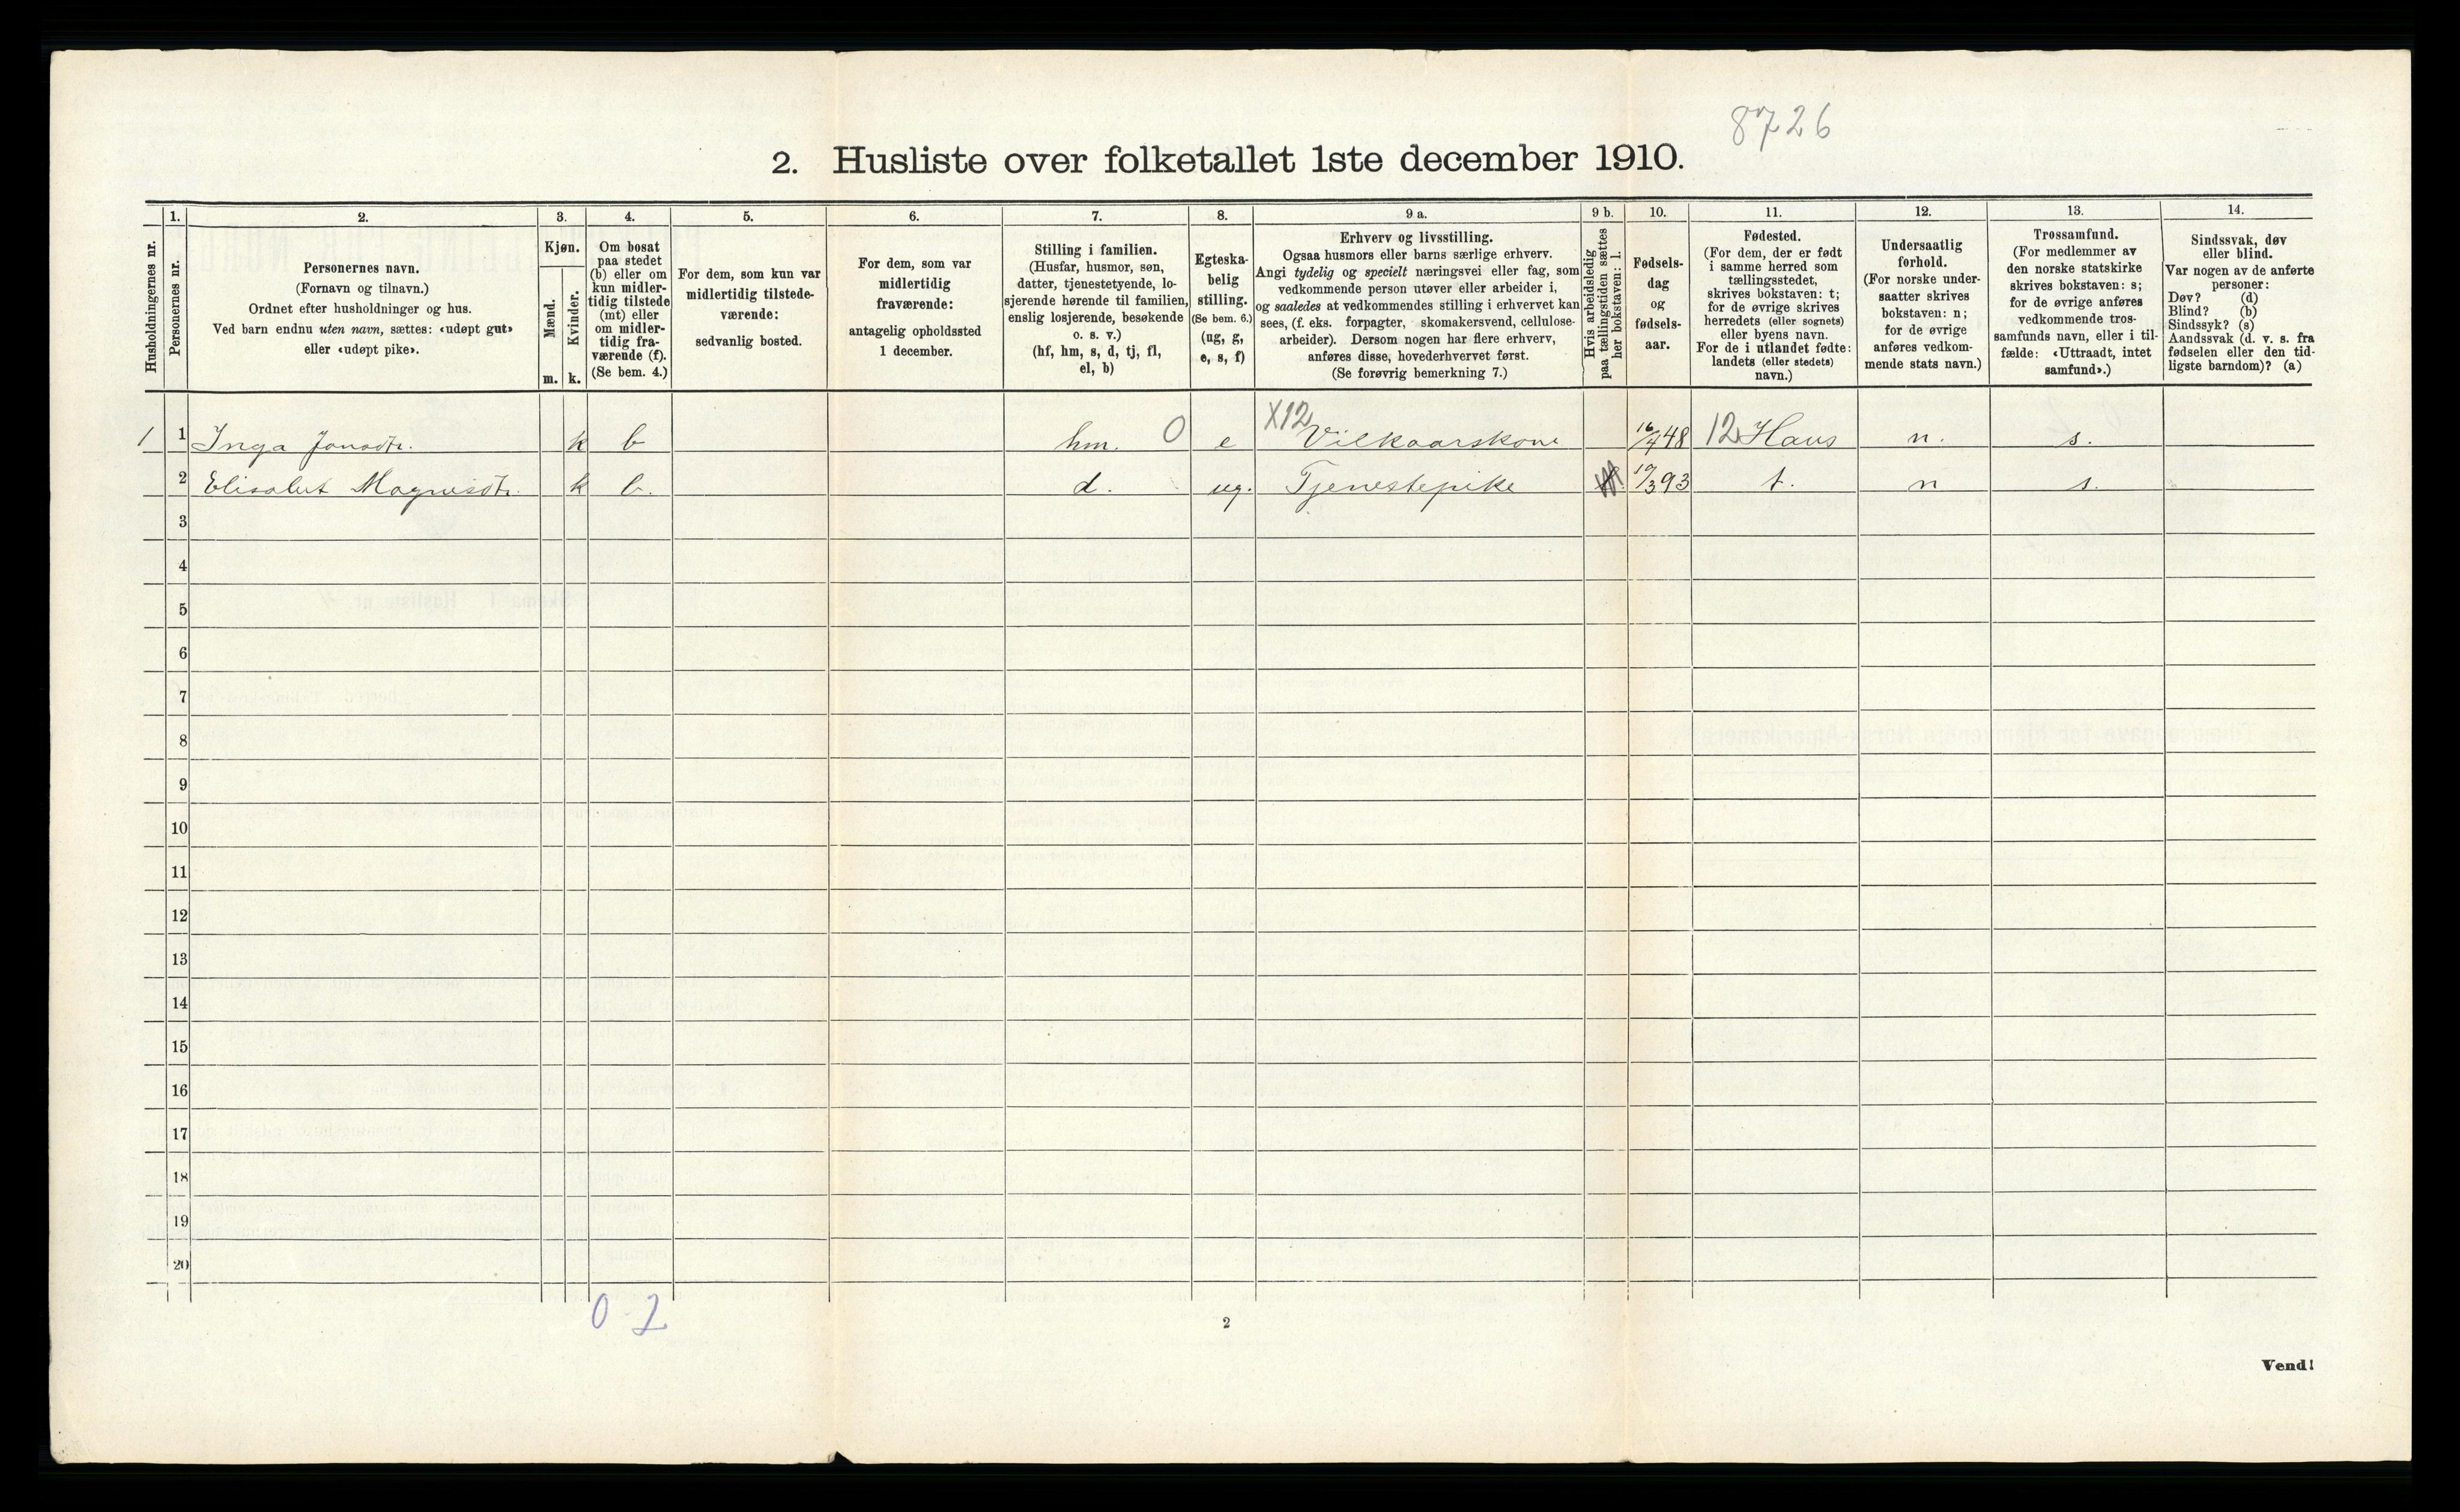 8726
2. Husliste over folketallet 1ste december 1910.
Husholdningernes nr.
1.
Personernes nr.
2.
Personernes navn.
(Fornavn og tilnavn.)
Ordnet efter husholdninger og hus.
Ved barn endnu uten navn, sættes: «udøpt gut»
eller «udøpt pike».
3.
Kjøn.
Mænd.
Kvinder.
m. k.
4.
Om bosat
paa stedet
(b) eller om
kun midler-
tidig tilstede
(mt) eller
om midler-
tidig fra-
værende (f).
(Se bem. 4.)
5.
For dem, som kun var
midlertidig tilstede-
værende:
sedvanlig bosted.
6.
For dem, som var
midlertidig
fraværende:
antagelig opholdssted
1 december.
7.
Stilling i familien.
(Husfar, husmor, søn,
datter, tjenestetyende, lo-
sjerende hørende til familien,
enslig losjerende, besøkende
o. s. v.)
(hf, hm, s, d, tj, fl,
el, b)
8.
Egteska-
belig
stilling.
(Se bem. 6.)
(ug, g,
e, s, f)
9 a.
Erhverv og livsstilling.
Ogsaa husmors eller barns særlige erhverv.
Angi tydelig og specielt næringsvei eller fag, som
vedkommende person utøver eller arbeider i,
og saaledes at vedkommendes stilling i erhvervet kan
sees, (f. eks. forpagter, skomakersvend, cellulose-
arbeider). Dersom nogen har flere erhverv,
anføres disse, hovederhvervet først.
(Se forøvrig bemerkning 7.)
9 b.
Hvis arbeidsledig
paa tællingstiden sættes
her bokstaven: l.
10.
Fødsels-
dag
og
fødsels-
aar.
11.
Fødested.
(For dem, der er født
i samme herred som
tællingsstedet,
skrives bokstaven: t;
for de øvrige skrives
herredets (eller sognets)
eller byens navn.
For de i utlandet fødte:
landets (eller stedets)
navn.)
12.
Undersaatlig
forhold.
(For norske under-
saatter skrives
bokstaven: n;
for de øvrige
anføres vedkom-
mende stats navn.)
13.
Trossamfund.
(For medlemmer av
den norske statskirke
skrives bokstaven: s;
for de øvrige anføres
vedkommende tros-
samfunds navn, eller i til-
fælde: «Uttraadt, intet
samfund».)
14.
Sindssvak, døv
eller blind.
Var nogen av de anførte
personer:
Døv? (d)
Blind? (b)
Sindssyk? (s)
Aandssvak (d. v. s. fra
fødselen eller den tid-
ligste barndom)? (a)
1 1 Inga Jonsdtr. k b hm. 0 e X12 Vilkaarskone 16/4 48 12 Haus n. s.
2 Elisabet Magnusdtr. k b. d. ug. Tjenestepike 19/3 93 t. n s.
3
4
5
6
7
8
9
10
11
12
13
14
15
16
17
18
19
20
0 2
2
Vend!